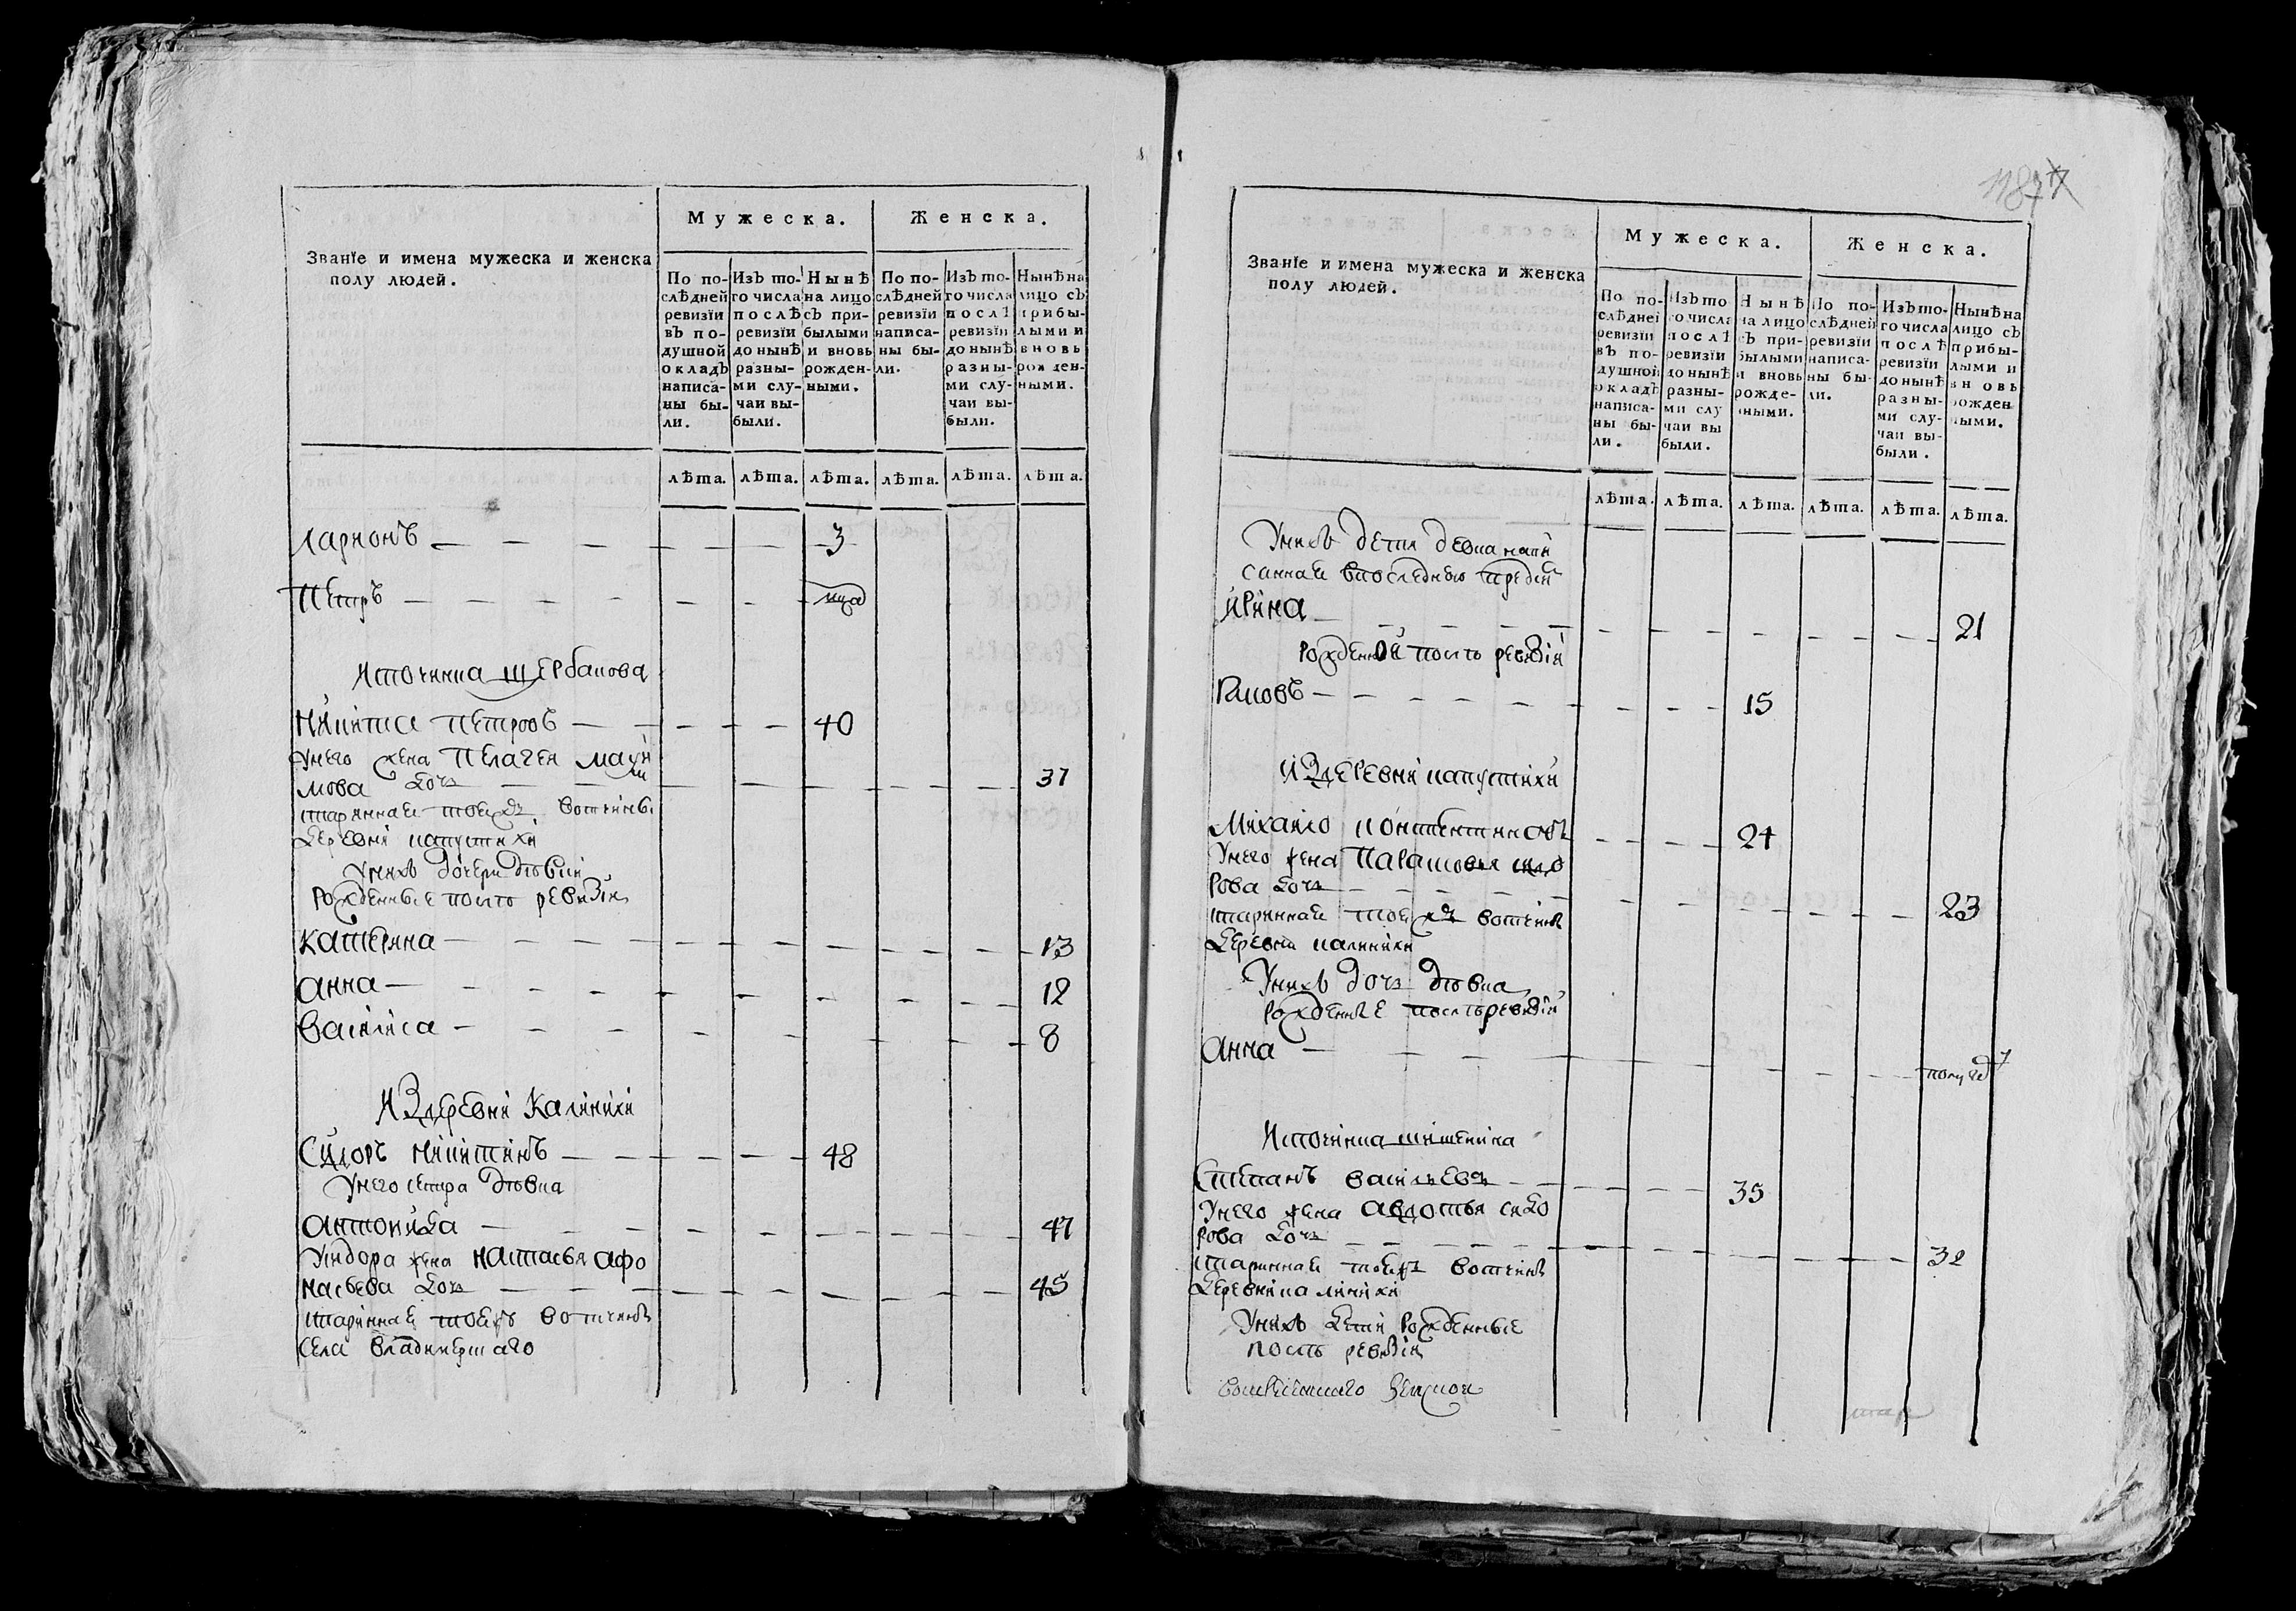 Званїе и имена мужеска и женска
полу людей.
Мужеска.
Женска.
По по-
слѣдней
ревизїи
въ по-
душной
окладъ
написа-
ны бы-
ли.
Изъ то-
го числа
послѣ
ревизїи
до нынѣ
разны-
ми слу-
чаи вы-
были.
Нынѣ
на лицо
съ при-
былыми
и вновь
рожден-
ными.
По по-
слѣдней
ревизїи
написа-
ны бы-
ли.
Изъ то-
го числа
послѣ
ревизїи
до нынѣ
разны-
ми слу-
чаи вы-
были.
Нынѣ на
лицо съ
прибы-
лыми и
вновь
рожден-
ными.
лѣта. лѣта. лѣта. лѣта. лѣта. лѣта.
Ларионъ 3
Петръ
Источинка Щербакова
Никита Петровъ 40
Унего жена Пелагея Макси
мова дочь 37
старинная тоежъ вотчины
деревни капустихи
Унихъ дочери девки
рожденные после ревизiи
Катерина 13
Анна 12
Василиса 8
Издеревни Калинихи
Сидоръ Никитинъ 48
Унего сестра девка
Антонида 47
Усидора жена Настасья афо
насьева дочь 45
старинная тоежъ вотчины
села владимерскаго
1187
Званїе и имена мужеска и женска
полу людей.
Мужеска.
Женска.
По по-
слѣдней
ревизїи
въ по-
душной
окладъ
написа-
ны бы-
ли.
Изъ то
го числа
послѣ
ревизїи
до нынѣ
разны-
ми слу
чаи вы
были.
Нынѣ
на лицо
съ при-
былыми
и вновь
рожде-
нными.
По по-
слѣдней
ревизїи
написа-
ны бы-
ли.
Изъ то-
го числа
послѣ
ревизїи
до нынѣ
разны-
ми слу-
чаи вы-
были.
Нынѣ на
лицо съ
прибы-
лыми и
вновь
рожден
ными.
лѣта. лѣта. лѣта. лѣта. лѣта. лѣта.
Унихъ дети девка напи
санная впоследнею
Ирина 21
рожденной после ревизiи
Яковъ 15
Издеревни капустихи
Михайло Констентиновъ 24
Унего жена Парасковья сидо
рова дочь 23
старинная тоежъ вотчины
деревни калинихи
Унихъ дочь девка
рожденнае после ревизiи
Анна полугода
Источинка шишенина
Степанъ Васильевъ 35
Унего жена Авдотья сидо
рова дочь 32
старинная тоежъ вотчины
деревни калинихи
Унихъ дети рожденные
после ревизiи